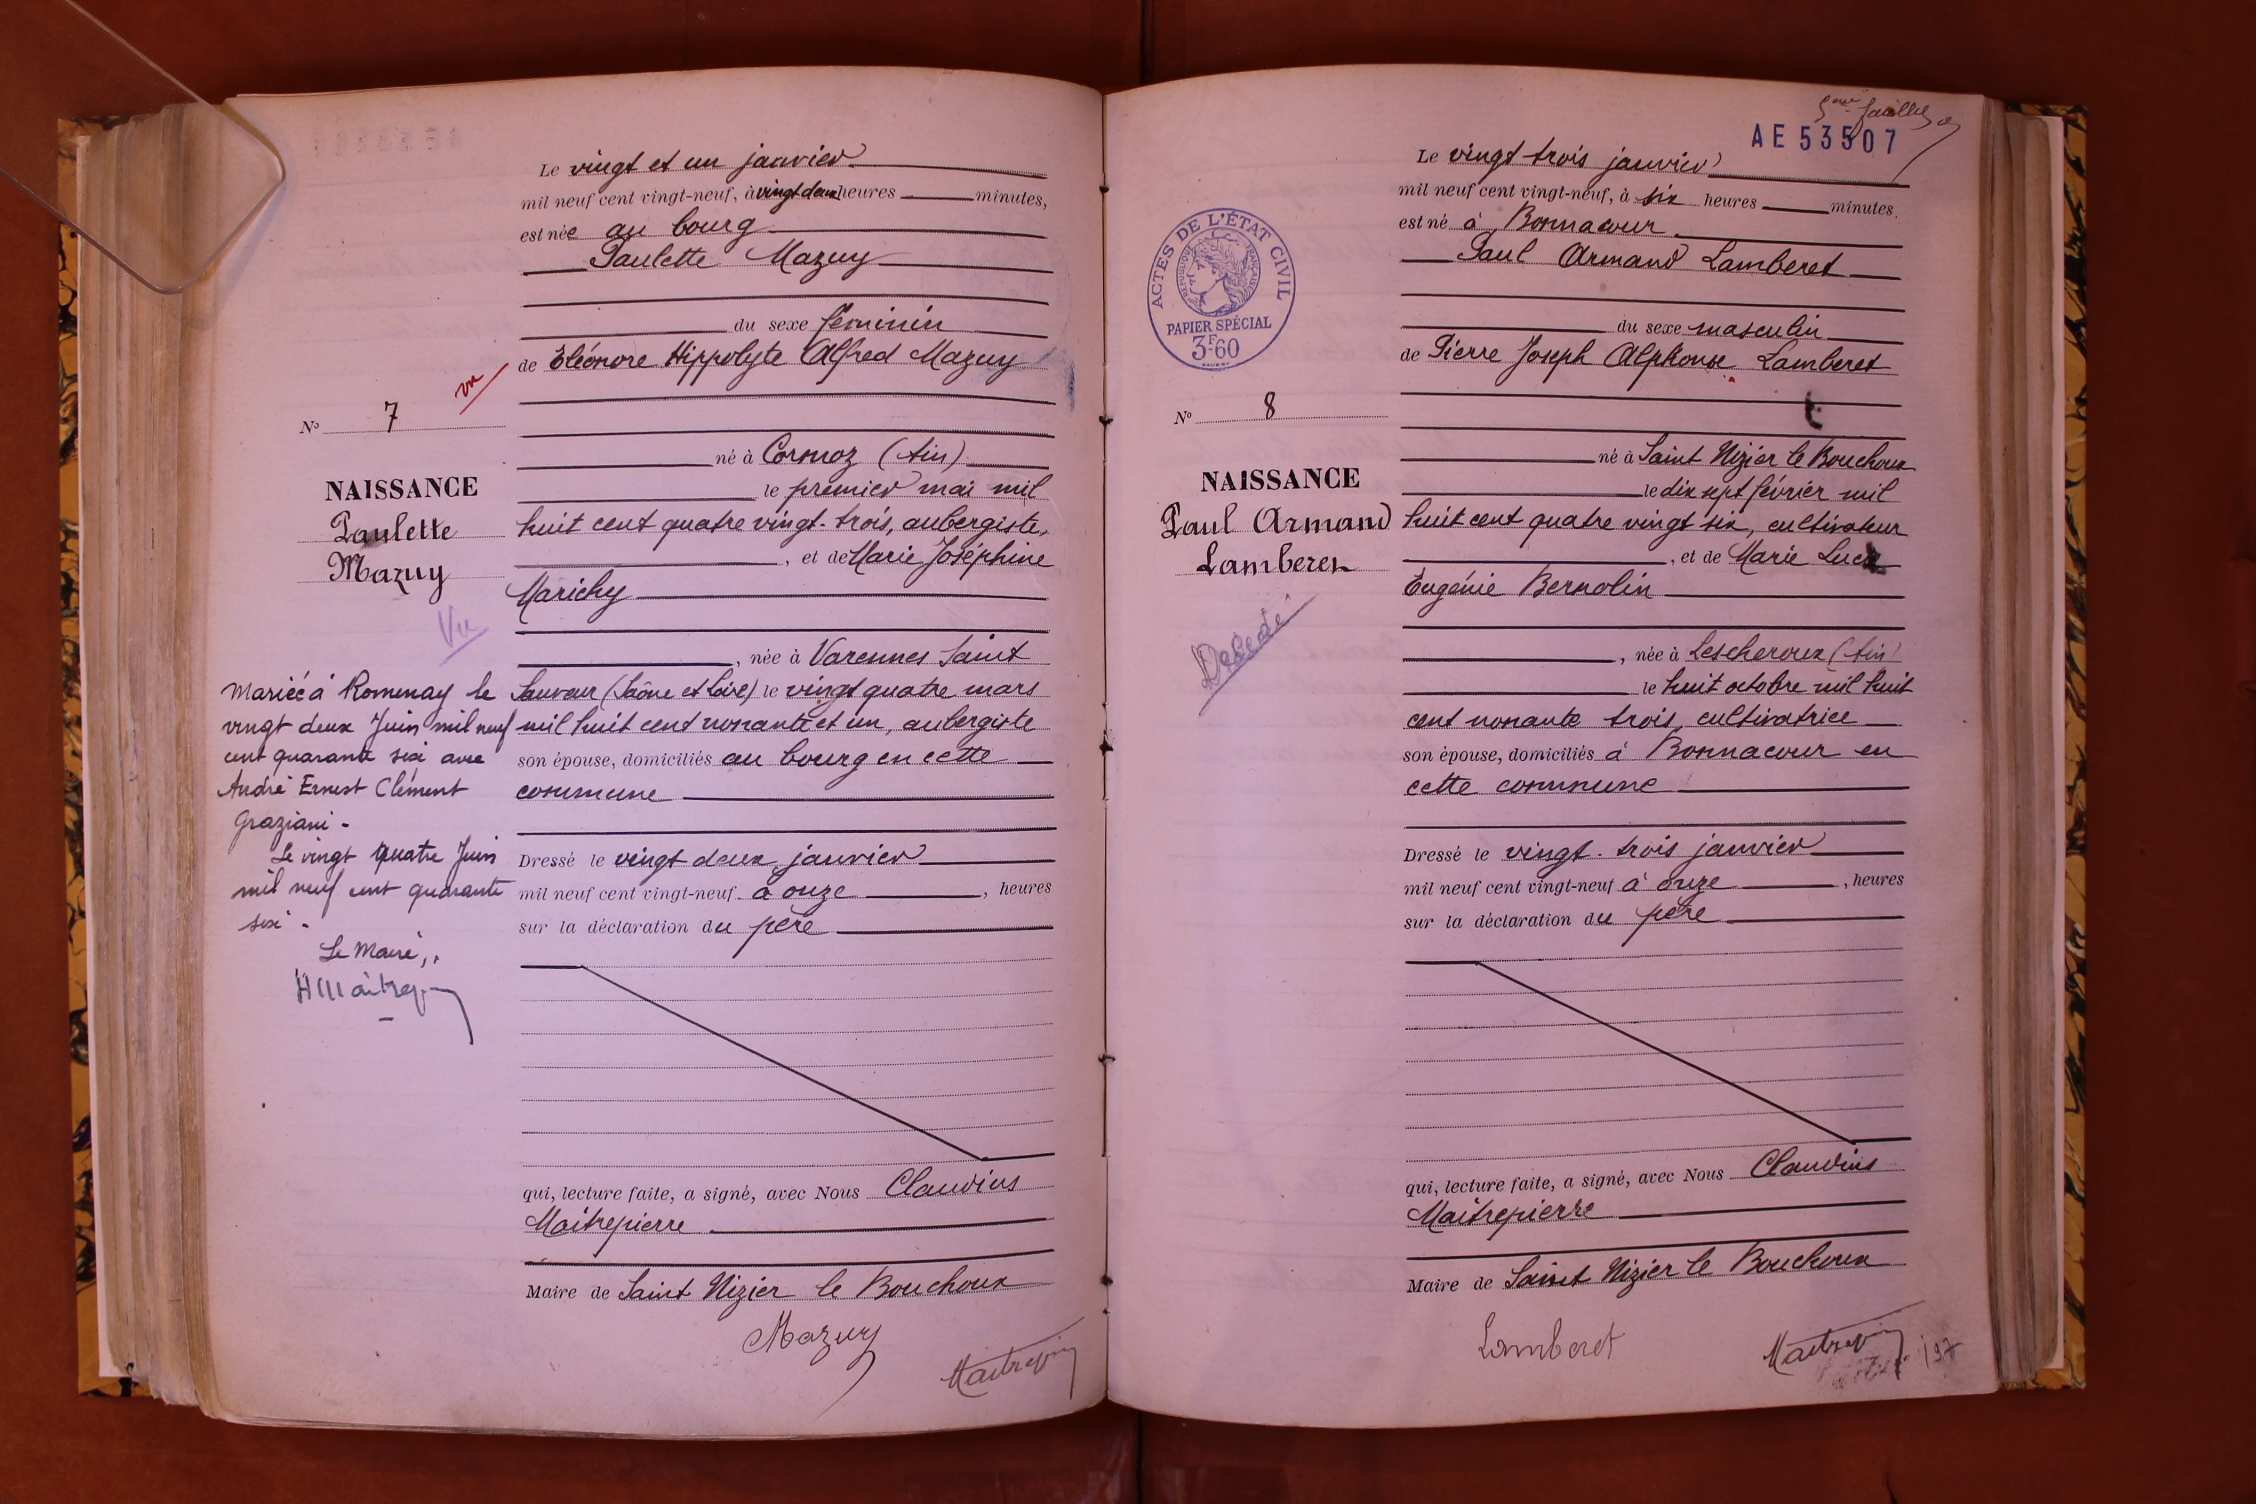 Le vingt et un janvier
mil neuf cent vingt-neuf, à vingt deux heures minutes,
est née au bourg
Paulette Mazuy
du sexe féminin
de Eléonore Hippolyte Alfred Mazuy
vu
No 7
né à Cormoz (Ain)
NAISSANCE
Paulette
Mazuy
Vu
le premier mai mil
huit cent quatre vingt-trois, aubergiste,
, et de Marie Joséphine
Marichy
, née à Varennes Saint
Sauveur (Saône et Loire) le vingt quatre mars
mil huit cent nonante et un, aubergiste
son épouse, domiciliés au bourg en cette
commune
Mariée à Romenay le
vingt deux Juin mil neuf
cent quarante six avec
André Ernest Clément
Graziani -
Le vingt quatre Juin
mil neuf cent quarante
six -
Le Maire,
HMaîtrep
Dressé le vingt deux janvier
mil neuf cent vingt-neuf à onze , heures
sur la déclaration du père
qui, lecture faite, a signé, avec Nous Claudius
Maîtrepierre
Maire de Saint Nizier le Bouchoux
Mazuy
Maitrep
5eme feuillet
AE 53507
Le vingt trois janvier
mil neuf cent vingt-neuf, à six heures minutes.
est né à Bonnacour
Paul Armand Lamberet
ACTES DE L'ÉTAT CIVIL
RÉPUBLIQUE FRANÇAISE
PAPIER SPÉCIAL
3F60
du sexe masculin
de Pierre Joseph Alphonse Lamberet
No 8
né à Saint Nizier le Bouchoux
NAISSANCE
Paul Armand
Lamberet
Décédé
le dix sept février mil
huit cent quatre vingt six, cultivateur
, et de Marie Luce
Eugénie Bernolin
, née à Lescheroux (Ain)
le huit octobre mil huit
cent nonante trois, cultivatrice
son épouse, domiciliés à Bonnacour en
cette commune
Dressé le vingt-trois janvier
mil neuf cent vingt-neuf à onze , heures
sur la déclaration du père
qui, lecture faite, a signé, avec Nous Claudius
Maîtrepierre
Maire de Saint Nizier le Bouchoux
Lamberet
Maitrep